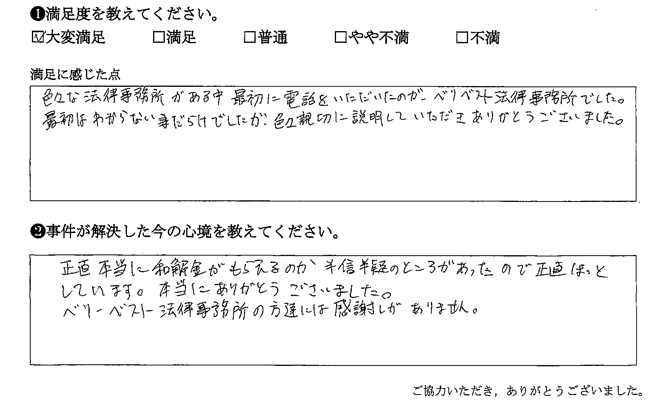 ❶満足度を教えてください。
☑大変満足 □満足 □普通 □やや不満 □不満
満足に感じた点
色々な法律事務所がある中最初に電話をいただいたのが、ベリーベスト法律事務所でした。
最初はわからない事だらけでしたが、色々親切に説明していただきありがとうございました。
❷事件が解決した今の心境を教えてください。
正直本当に和解金がもらえるのか半信半疑のところがあったので正直ほっと
しています。本当にありがとうございました。
ベリーベスト法律事務所の方達には感謝しかありません。
ご協力いただき，ありがとうございました。